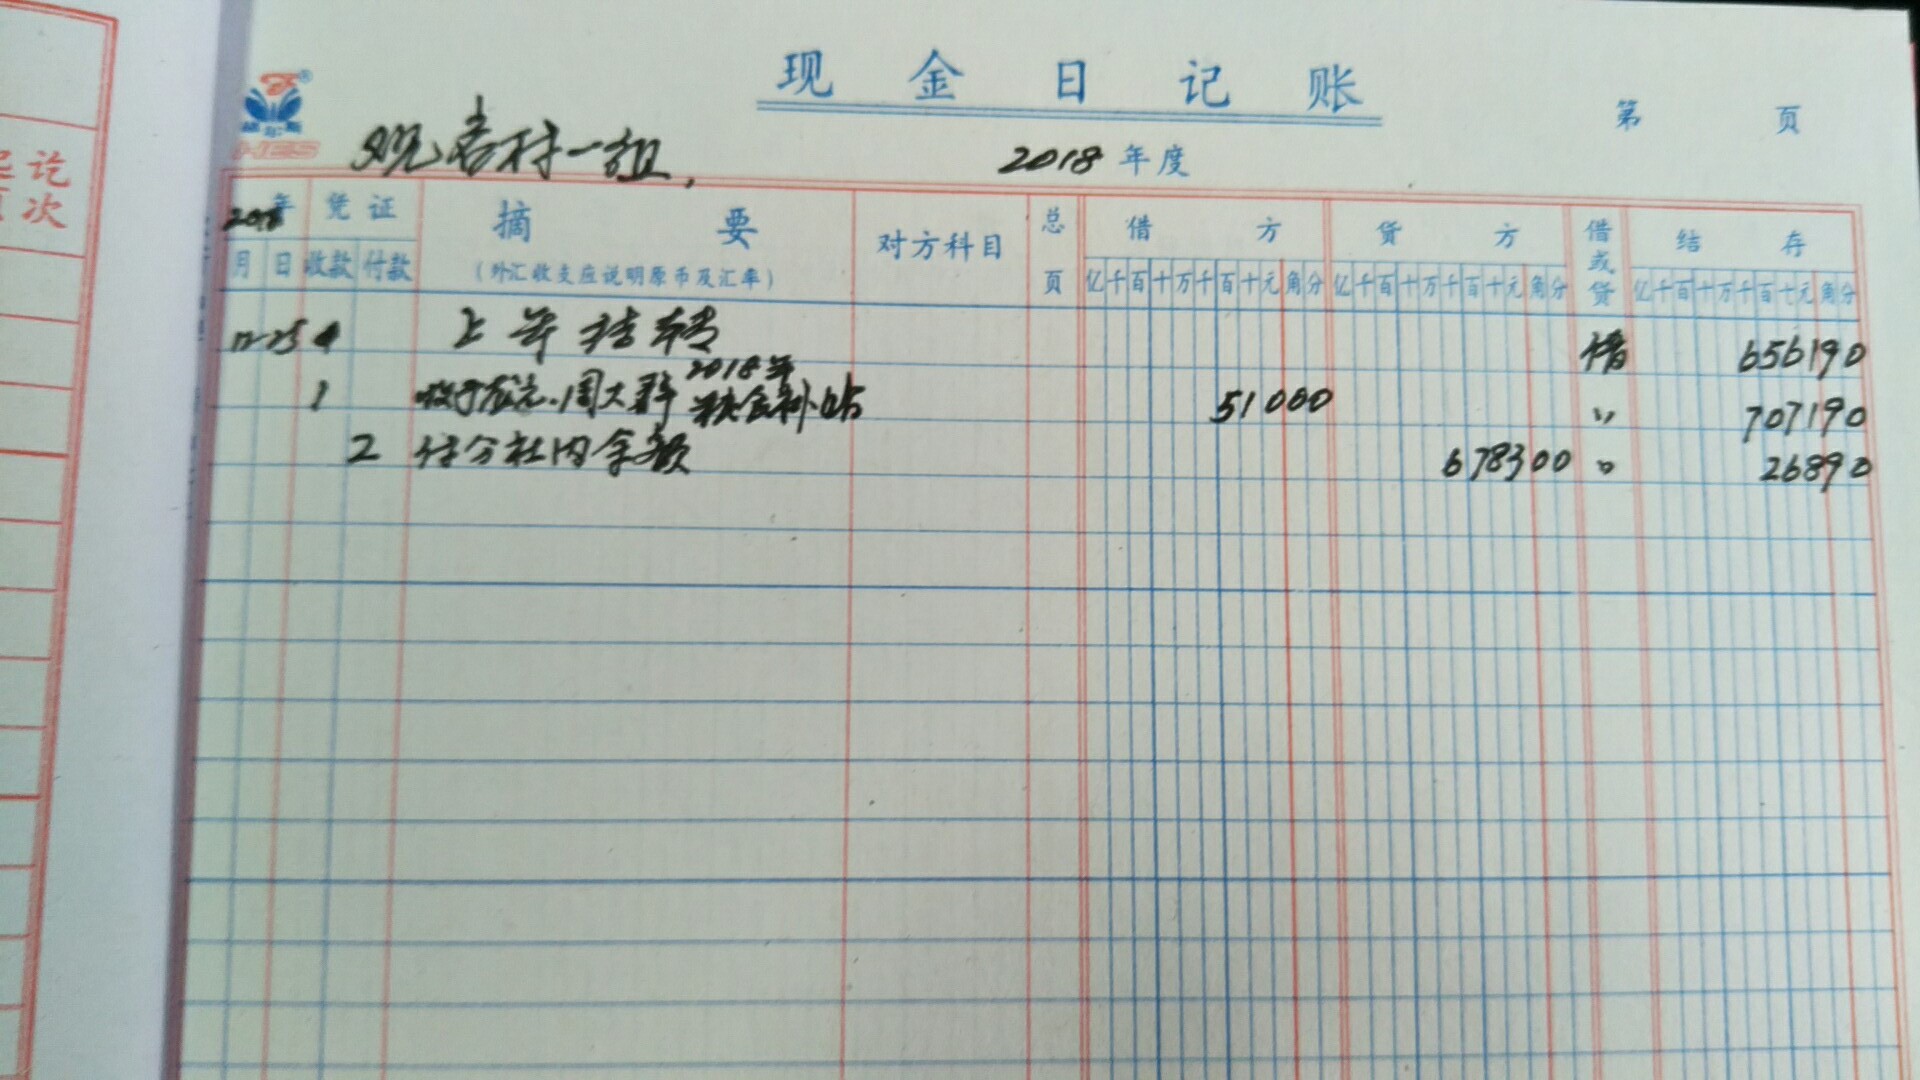 讫
次
现金日记账
第 页
赫尔斯
HES
村一组
2018年度
2018年 凭证 摘要 对方科目 总页 借方 贷方 借或贷 结存
月 日 收款 付款 (外汇收支应说明原币及汇率) 亿千百十万千百十元角分 亿千百十万千百十元角分 亿千百十万千百十元角分
12-25 上年结转 借 656190
2018年
1 收 周大 粮食补贴 51000 〃 707190
2 内余额 678300 〃 26890